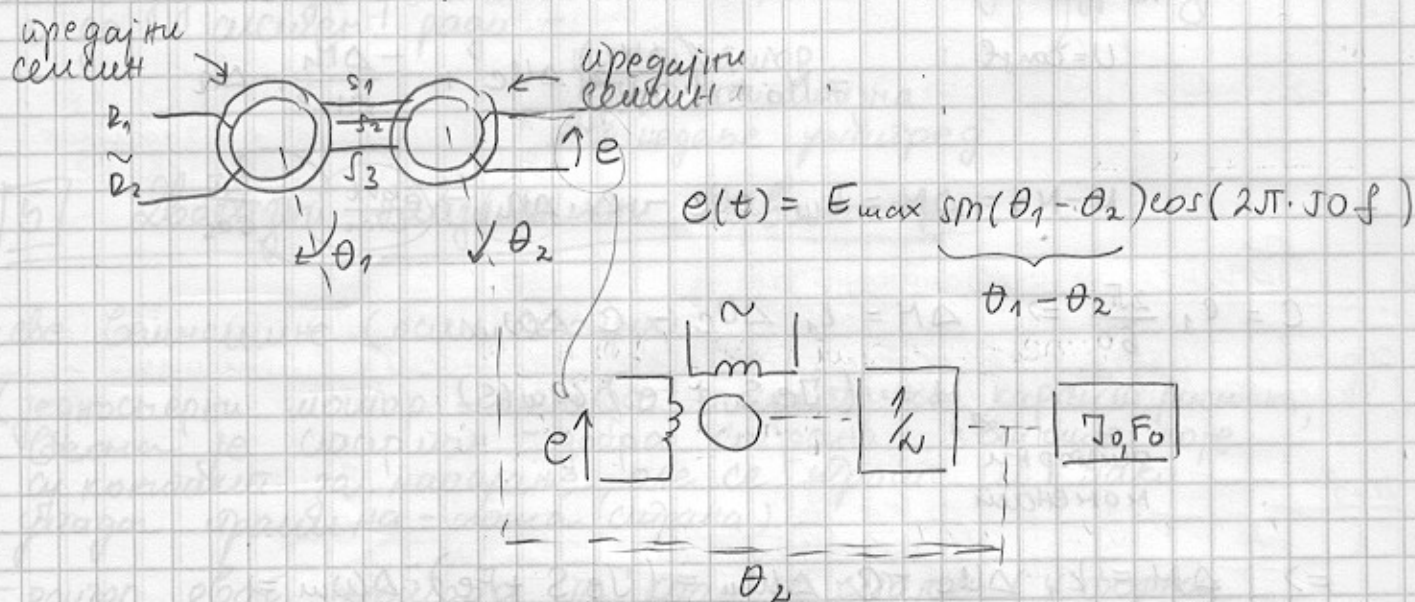 предајни
селсин
предајни
селсин
R₁
~
R₂
S1
S2
S3
θ₁
θ₂
↑ e
e(t) = Emax sin(θ₁-θ₂)cos(2π·50t)
θ₁-θ₂
~
e↑
1/N
J₀,F₀
θ₂